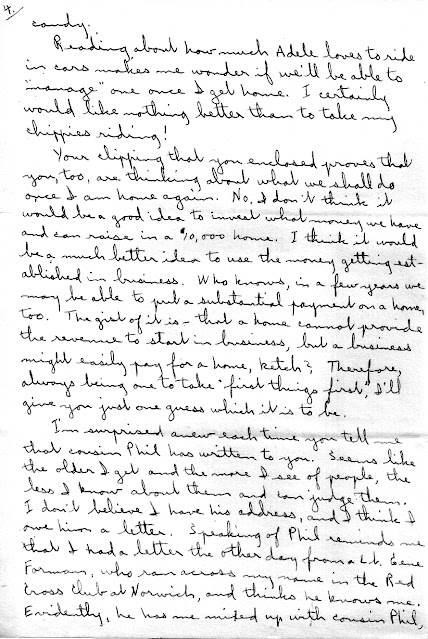 4.
candy.
Reading about how much Adele loves to ride
in cars makes me wonder if we'll be able to
"manage" one once I get home. I certainly
would like nothing better than to take my
chippies riding!
Your clipping that you enclosed proves that
you, too, are thinking about what we shall do
once I am home again. No, I don't think it
would be a good idea to invest what money we have
and can raise in a $10,000 home. I think it would
be a much better idea to use the money getting est-
ablished in business. Who knows, in a few years we
may be able to put a substantial payment on a home,
too. The gist of it is - that a home cannot provide
the revenue to start in business, but a business
might easily pay for a home, ketch? Therefore,
always being one to take "first things first", I'll
give you just one guess which it is to be.
I'm surprised anew each time you tell me
that cousin Phil has written to you. Seems like
the older I get and the more I see of people, the
less I know about them and can judge them.
I don't believe I have his address, and I think I
owe him a letter. Speaking of Phil reminds me
that I had a letter the other day from a Lt. Gene
Forman, who ran across my name in the Red
Cross Club at Norwich, and thinks he knows me.
Evidently, he has me mixed up with cousin Phil,